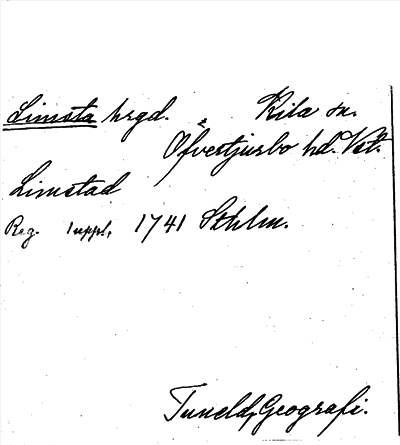 Limsta hrgd. Kila sn.
Öfvertjurbo hd. Vstl.
Limstad
Reg. suppl, 1741 Sthlm.
Tuneld, Geografi.